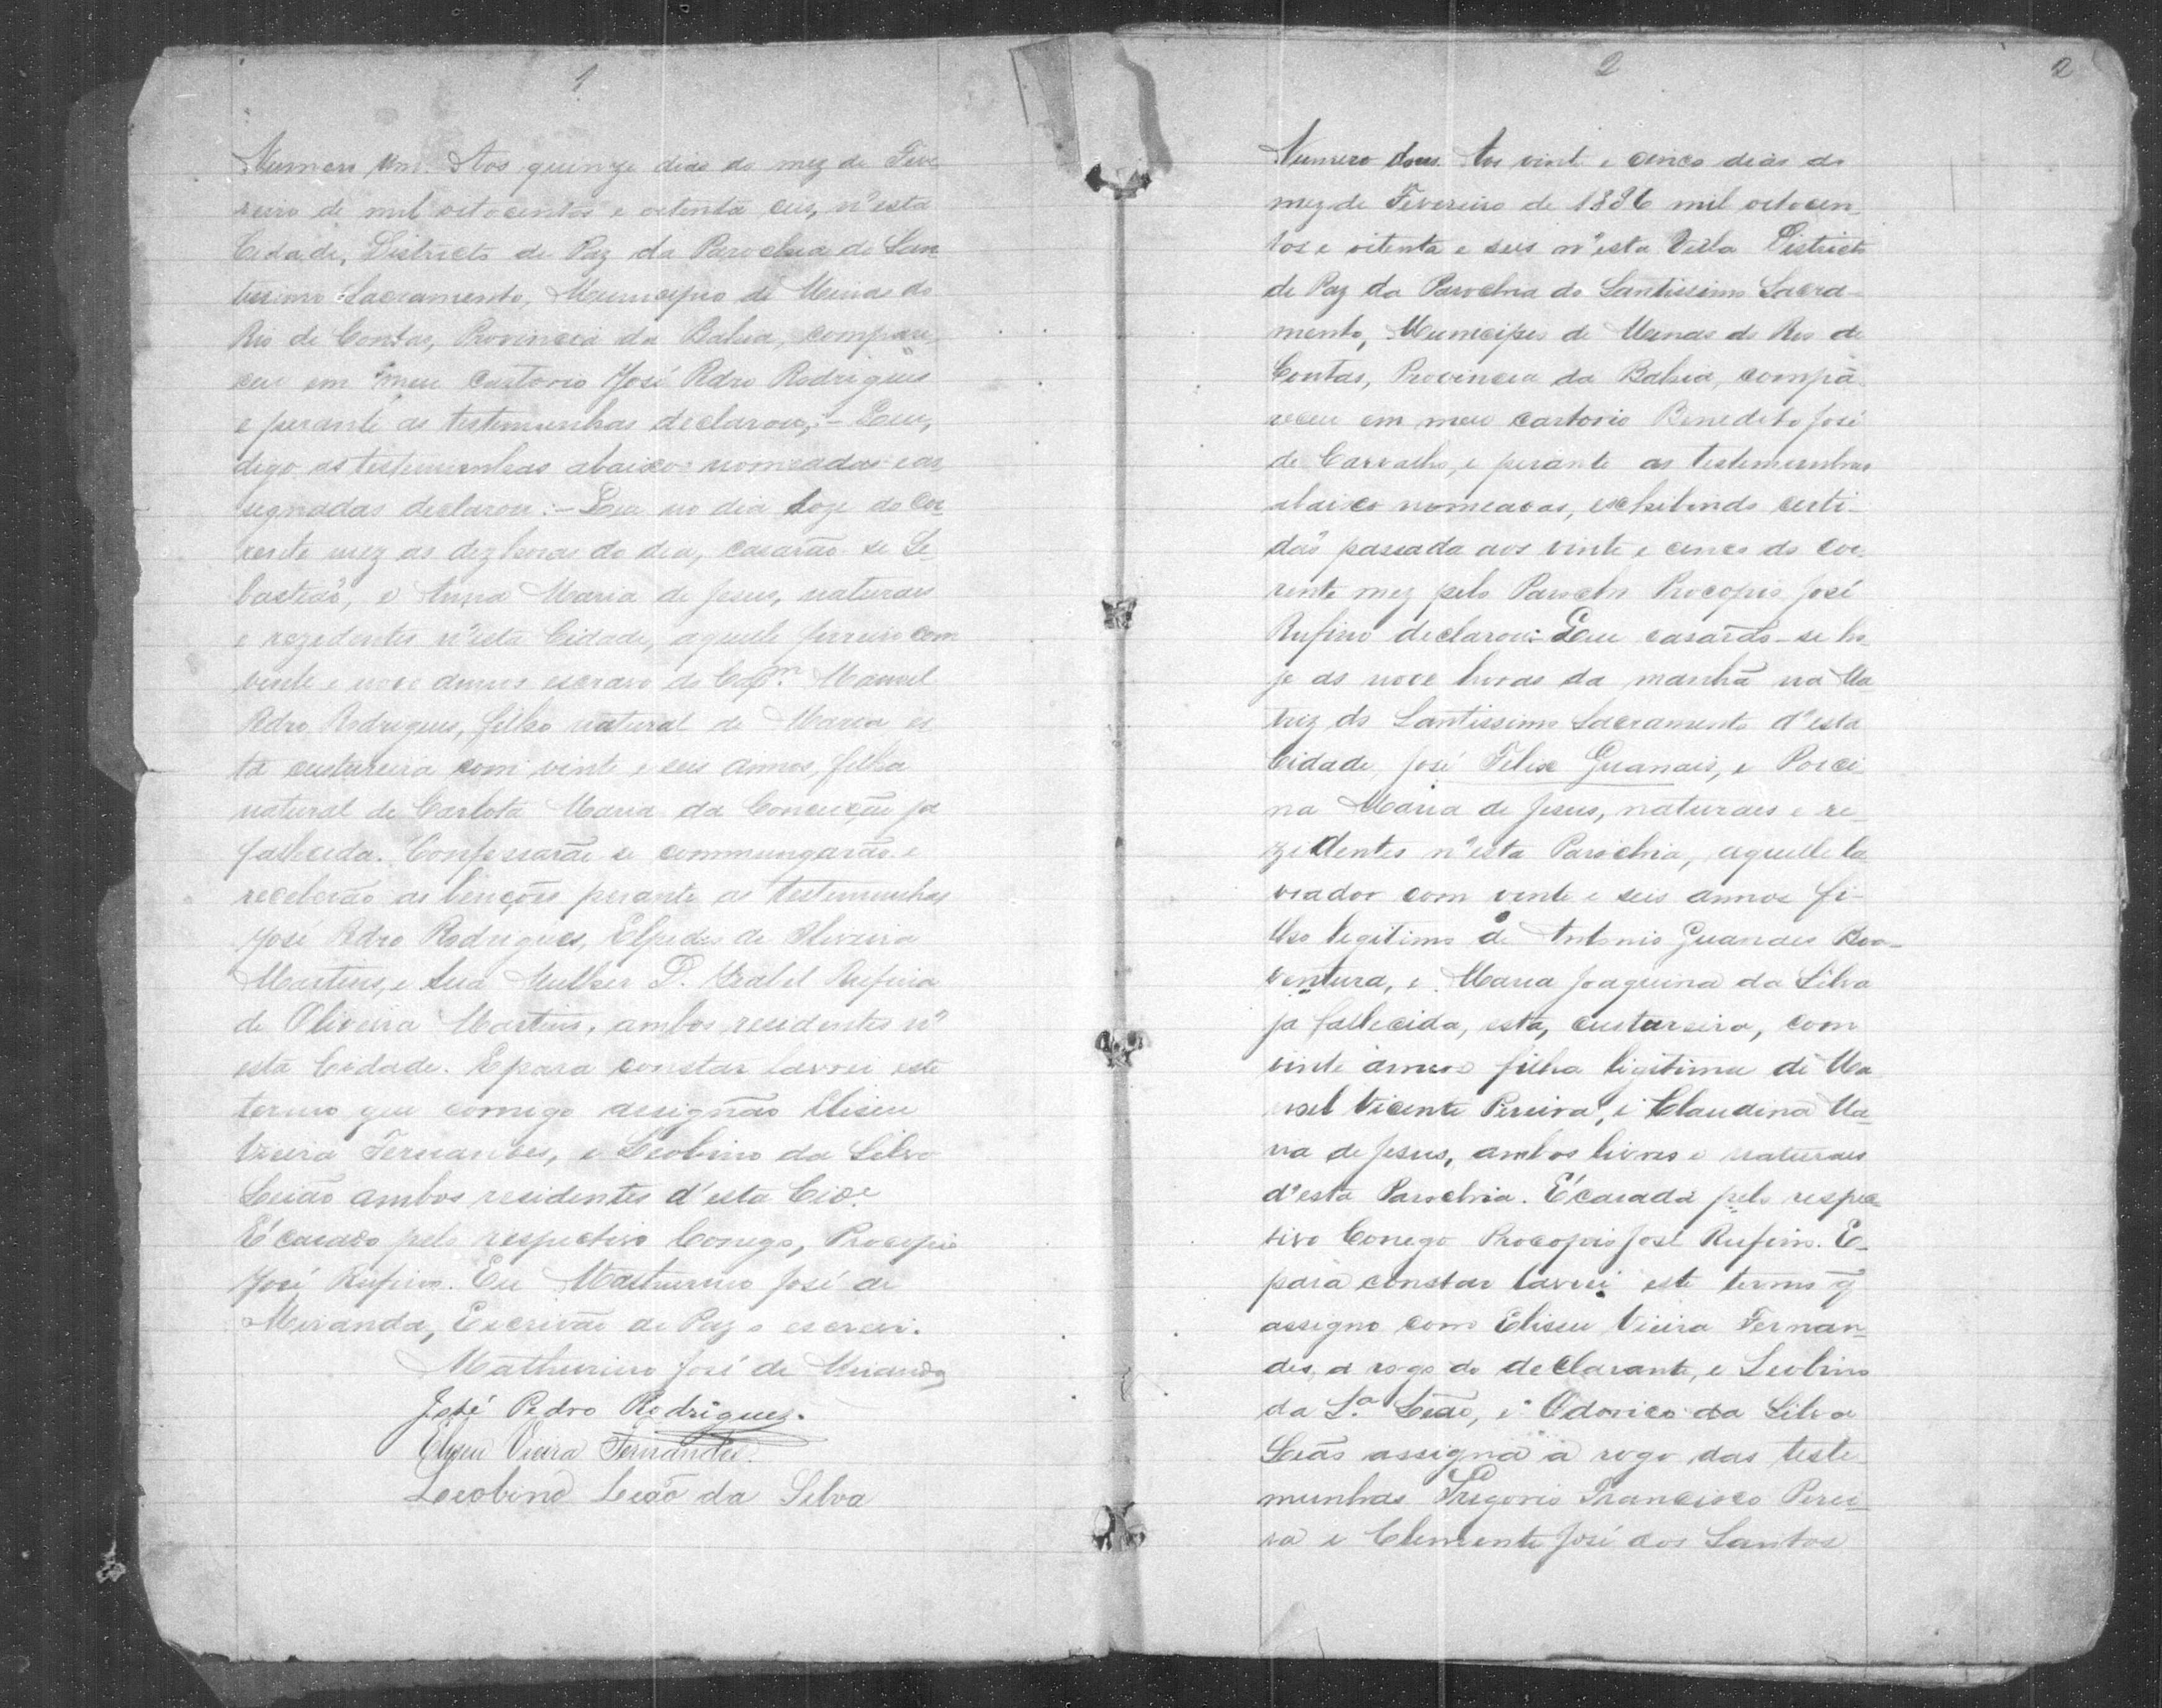 1
Numero um. Aos quinze dias do mez de Feve
reiro de mil oitocentos e oitenta seis, n'esta
Cidade, Districto de Paz da Parochia do San
tissimo Sacramento, Municipio de Minas do
Rio de Contas, Provincia da Bahia, compare
ceu em meu cartorio José Pedro Rodrigues
e perante as testemunhas declarou; - Que,
digo as testemunhas abaixo nomeadas e as
signadas declarou: - Que no dia doze do cor
rente mez as dez horas do dia, casarão se Se
bastião, e Anna Maria de Jesus, naturaes
e rezidentes n'esta Cidade, aquelle ferreiro com
vinte e nove annos escravo do Capm. Manoel
Pedro Rodrigues, filho natural de Maria es
ta custureira com vinte e seis annos, filha
natural de Carlota Maria da Conceição ja
fallecida. Confessarão se commungarão e
receberão as bençãos perante as testemunhas
José Pedro Rodrigues, Elpidio de Oliveira
Martins, e sua Mulher D. Izabel Rufina
de Oliveira Martins, ambos residentes n'
esta Cidade. E para constar lavrei este
termo que comigo assignão Eliseu
Vieira Fernandes, e Leobino da Silva
Leião ambos residentes d'esta Cide.
E' casado pelo respectivo Conego, Procopio
José Rufino. Eu Mathurino José de
Miranda, Escrivão de Paz o escrevi.
Mathurino José de Miranda
José Pedro Rodrigues.
Eliseu Vieira Fernandes.
Leobino Leão da Silva
2
2
Numero dous. Aos vinte e cinco dias do
mez de Fevereiro de 1886 mil oitocen
tos e oitenta e seis n'esta Villa Districto
de Paz da Parochia do Santissimo Sacra-
mento, Municipio de Minas do Rio de
Contas, Provincia da Bahia, compa
receu em meu cartorio Benedito José
de Carvalho, e perante as testemunhas
abaixo nomeadas, exhibindo certi-
dão passada aos vinte e cinco do cor
rente mez pelo Parocho Procopio José
Rufino declarou: Que casarão-se ho
je as nove horas da manhã na Ma
triz do Santissimo Sacramento d'esta
Cidade, José Felix Guanais, e Porci
na Maria de Jesus, naturaes e re-
zidentes n'esta Parochia, aquelle la
vrador com vinte e seis annos fi-
lho legitimo de Antonio Guanaes Boa-
ventura, e Maria Joaquina da Silva
ja fallecida, esta, custureira, com
vinte annos filha ligitima de Ma
noel Vicente Pereira, e Claudina Ma-
ria de Jesus, ambos livres e naturaes
d'esta Parochia. E' casada pelo respec-
tivo Conego Procopio José Rufino. E-
para constar lavrei este termo q̃
assigno com Eliseu Vieira Fernan-
des, a rogo do declarante, e Leobino
da Sa. Leão, e Odorico da Silva
Leão assigna a rogo das teste-
munhas Gregorio Francisco Perei-
ra e Clemente José dos Santos